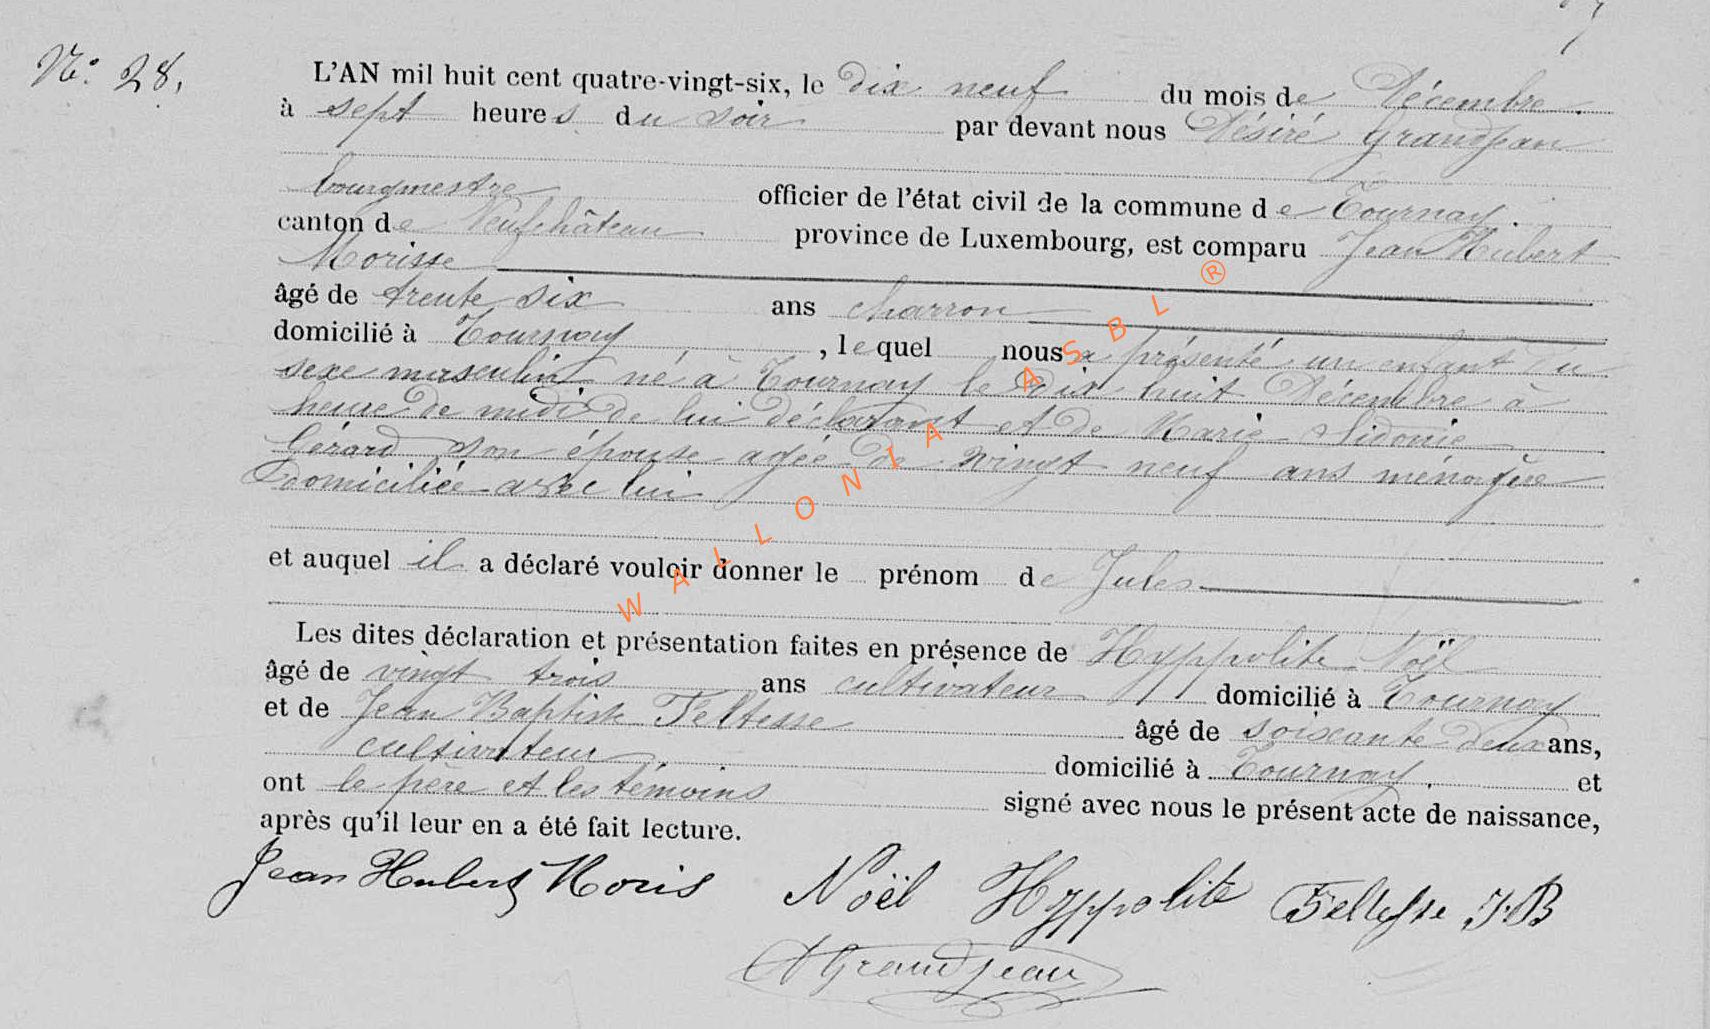 N.º 28.
L'AN mil huit cent quatre-vingt-six, le dix neuf du mois de Décembre
à sept heures du soir par devant nous Désiré Grandjean
bourgmestre officier de l'état civil de la commune de Tournay.
canton de Neufchâteau province de Luxembourg, est comparu Jean Hubert
Morisse
âgé de trente six ans charron
domicilié à Tournay, lequel nous a présenté un enfant du
sexe masculin, né à Tournay le dix huit Décembre à
heure de midi de lui déclarant et de Marie Sidonie
Gérard son épouse agée de vingt neuf ans ménagère
domiciliée avec lui
et auquel il a déclaré vouloir donner le prénom de Jules
Les dites déclaration et présentation faites en présence de Hyppolite Noël
âgé de vingt trois ans cultivateur domicilié à Tournay
et de Jean Baptiste Feltesse âgé de soixante deux ans,
cultivateur domicilié à Tournay. et
ont le père et les témoins signé avec nous le présent acte de naissance,
après qu'il leur en a été fait lecture.
Jean Hubert Moris Noël Hyppolite Feltesse J.B
Grandjean
WALLONIA ASBL ®